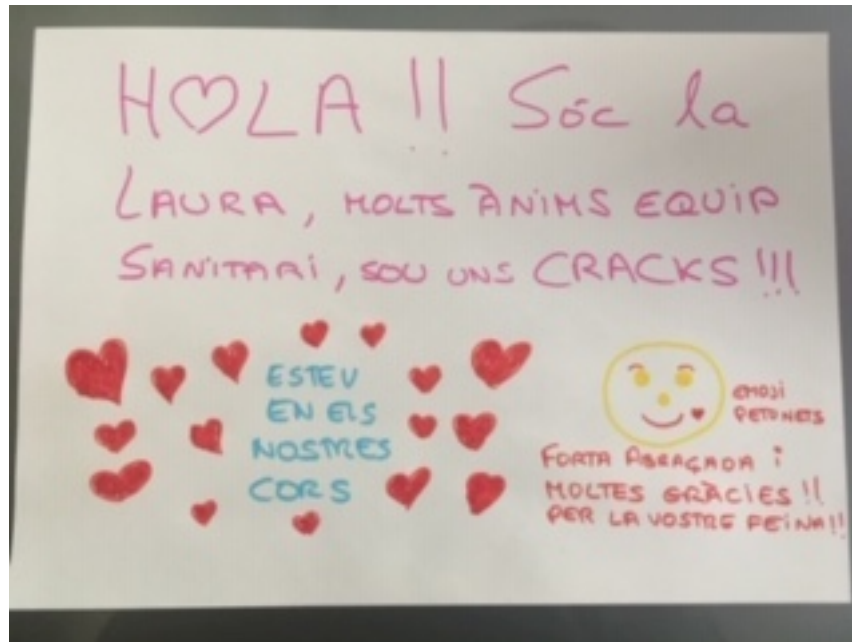 HOLA!! Sóc la
LAURA, MOLTS ÀNIMS EQUIP
SANITARI, SOU UNS CRACKS!!!
ESTEU
EN ELS
NOSTRES
CORS
EMOJI
PETONETS
FORTA ABRAÇADA i
MOLTES GRÀCIES!!
PER LA VOSTRE FEINA!!